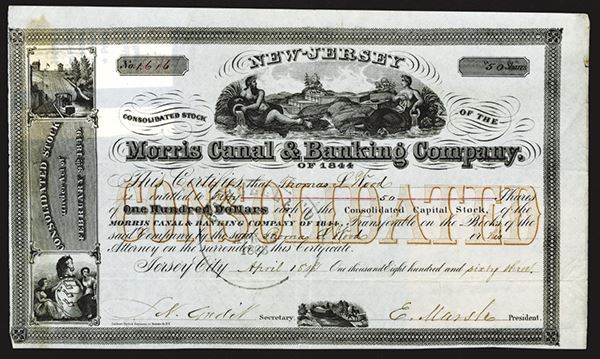 NEW-JERSEY
No. 1616
50 Shares
CONSOLIDATED STOCK OF THE
Morris Canal & Banking Company.
OF 1844
This Certifies that Thomas S Wood
entitled to Fifty 50 Shares
of One Hundred Dollars each of the Consolidated Capital Stock, of the
MORRIS CANAL & BANKING COMPANY OF 1844, Transferable on the Books of the
said Company, by the said Thomas S Wood or his
Attorney on the surrender of this Certificate.
Jersey City April One thousand Eight hundred and sixty three
Secretary. E. Marsh President.
CONSOLIDATED
CONSOLIDATED STOCK
FEBRUARY